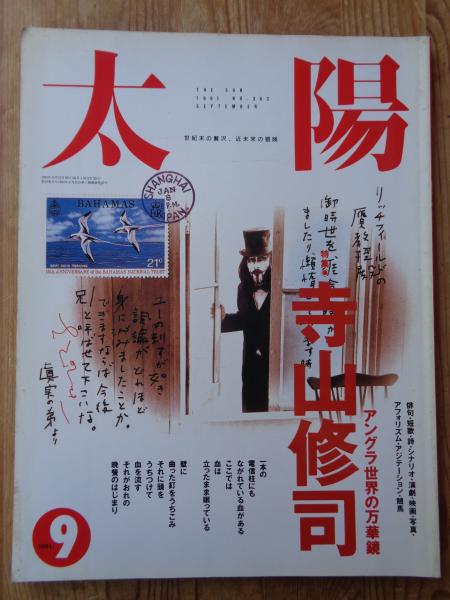 太陽
THE SUN
1991 NO.363
SEPTEMBER
世紀末の贅沢、近未来の冒険
BAHAMAS
21¢
15th ANNIVERSARY of the BAHAMAS NATIONAL TRUST
SHANGHAI
JAN
JAPAN
リッチフィールドの
特集
寺山修司
アングラ世界の万華鏡
俳句・短歌・詩・シナリオ・演劇・映画・写真・
アフォリズム・アジテーション・競馬
身にしみましたことか。
できますならば今後
兄と呼ばせて下さいな。
真実の弟より
一本の
電信柱にも
ながれている血がある
ここでは
血は
立ったまま眠っている
壁に
曲った釘をうちこみ
それに頭を
うちつけて
血を流す
それがおれの
晩餐のはじまり
1991
9